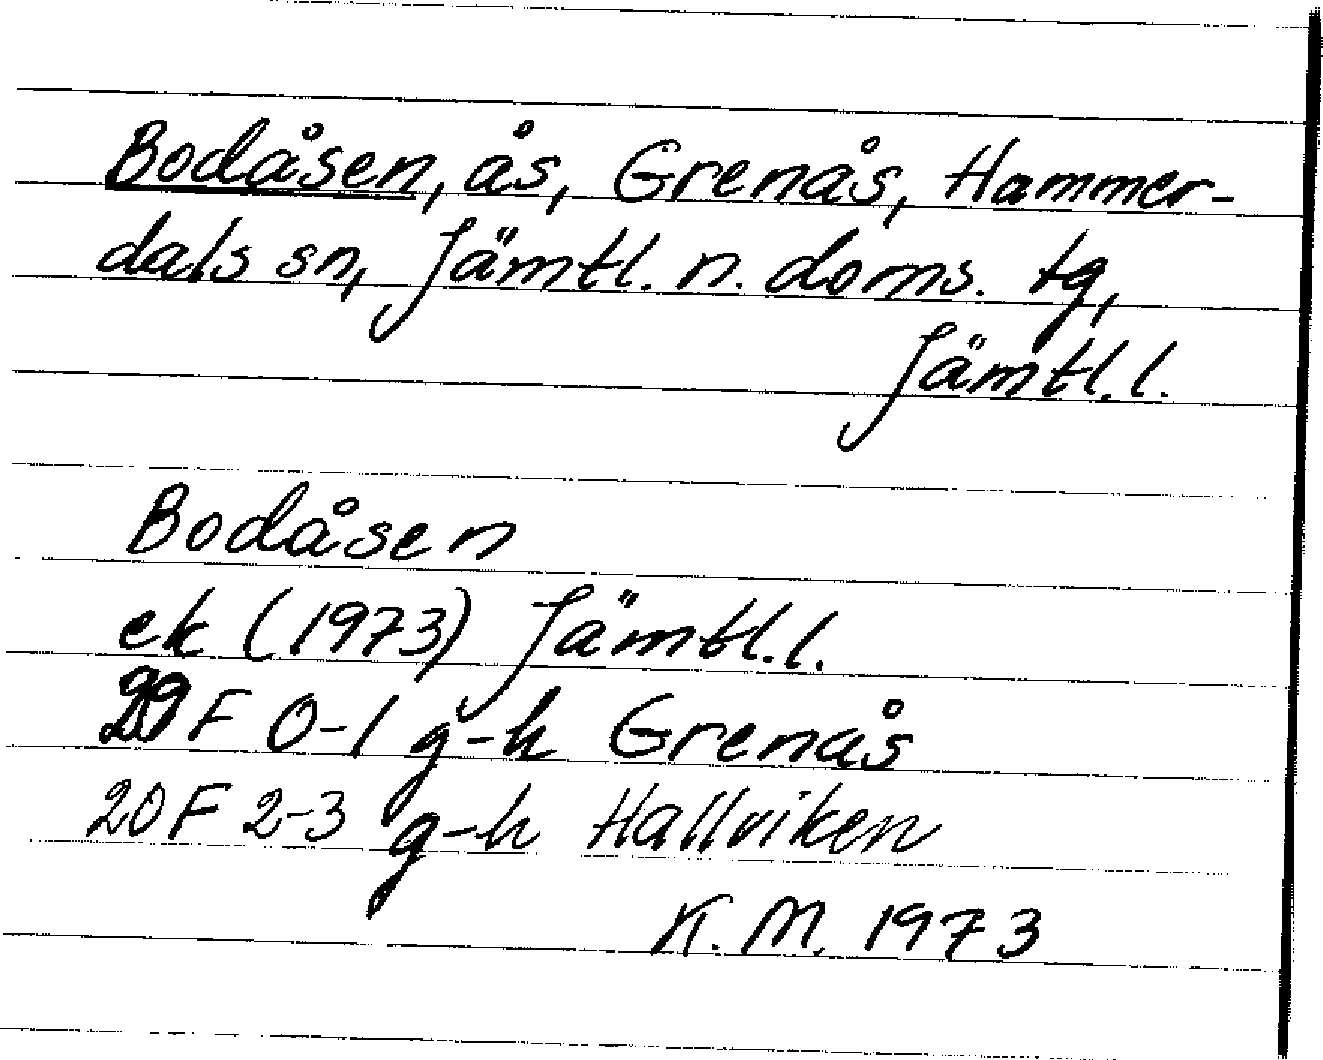 Bodåsen, ås, Grenås, Hammer-
dals sn, Jämtl. n. doms. tg,
Jämtl. l.
Bodåsen
ek (1973) Jämtl. l.
F 0-1 g-h Grenås
20F 2-3 g-h Hallviken
K. M. 1973